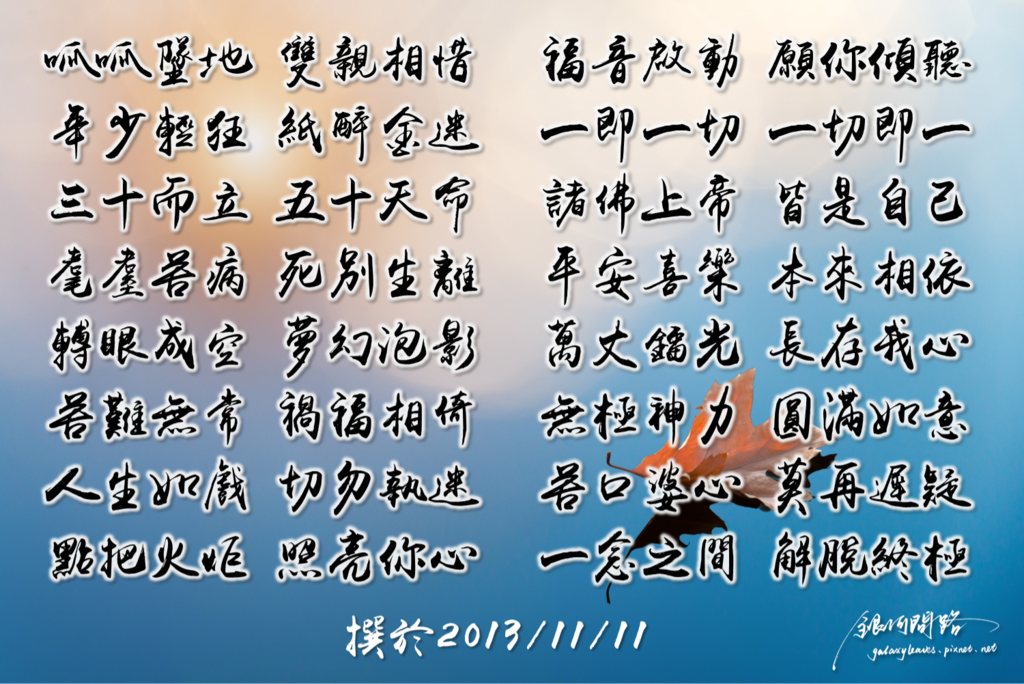 呱呱墜地 雙親相惜
年少輕狂 紙醉金迷
三十而立 五十天命
耄耋苦病 死別生離
轉眼成空 夢幻泡影
苦難無常 禍福相倚
人生如戲 切勿執迷
點把火炬 照亮你心
福音啟動 願你傾聽
一即一切 一切即一
諸佛上帝 皆是自己
平安喜樂 本來相依
萬丈鐳光 長存我心
無極神力 圓滿如意
苦口婆心 莫再遲疑
一念之間 解脫終極
撰於2013/11/11
銀河問路
galaxyleaves.pixnet.net